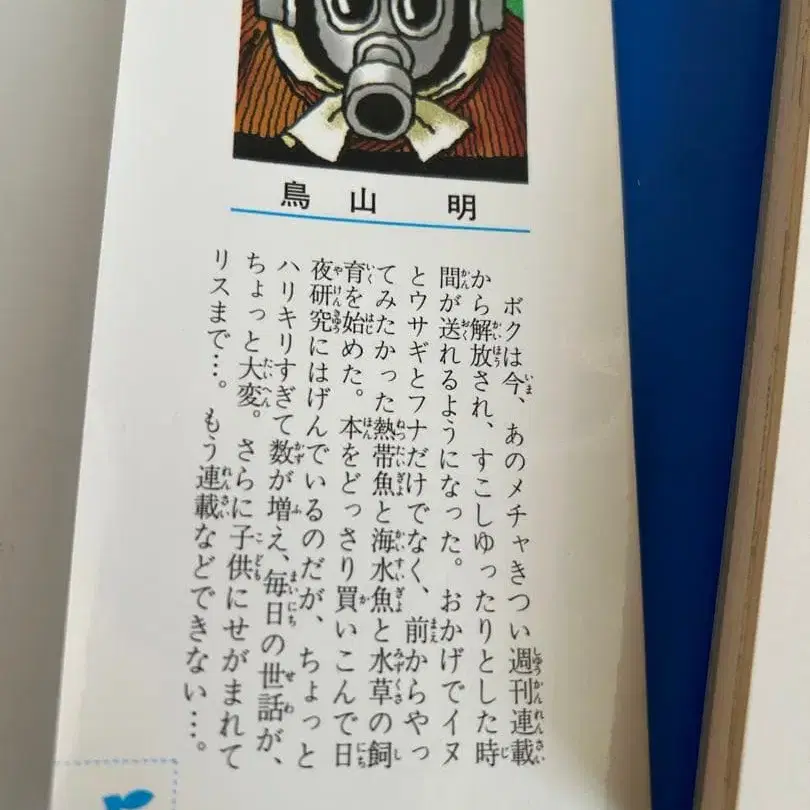 鳥山 明
ボクは今、あのメチャきつい週刊連載
から解放され、すこしゆったりとした時
間が送れるようになった。おかげでイヌ
とウサギとフナだけでなく、前からやっ
てみたかった熱帯魚と海水魚と水草の飼
育を始めた。本をどっさり買いこんで日
夜研究にはげんでいるのだが、ちょっと
ハリキリすぎて数が増え、毎日の世話が、
ちょっと大変。さらに子供にせがまれて
リスまで…。もう連載などできない…。